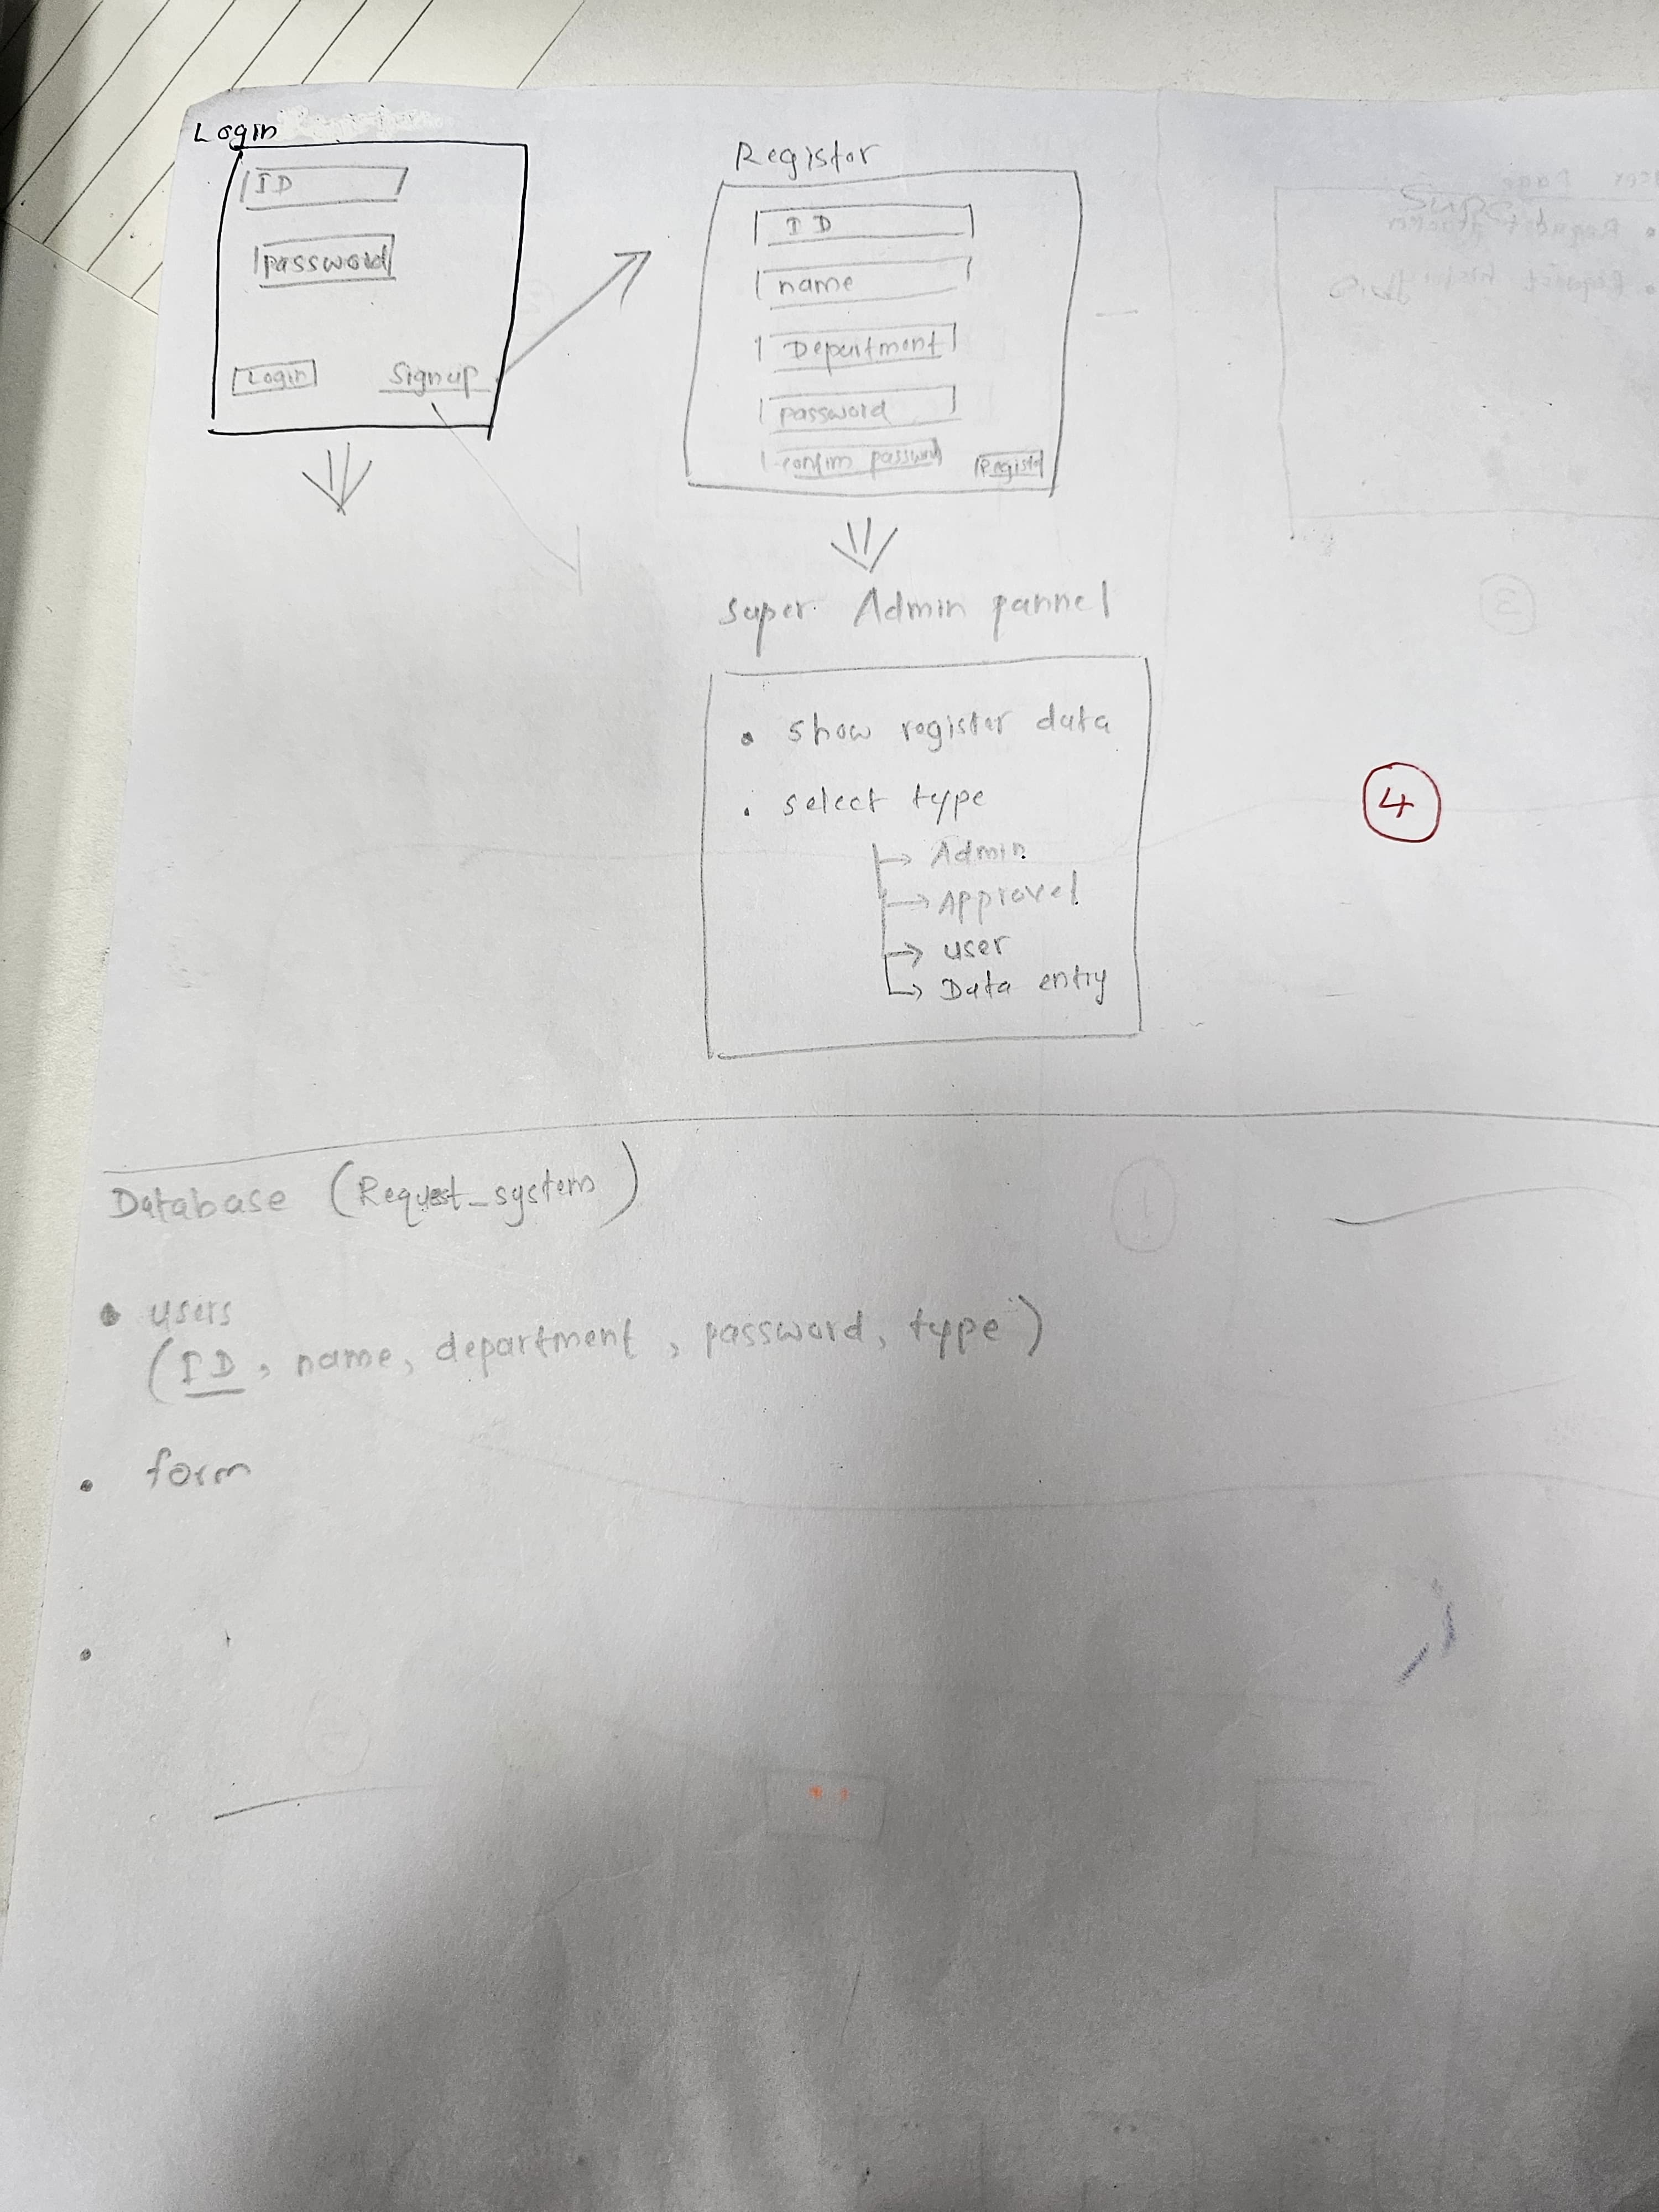 Login
ID
password
Login
Signup
Registor
ID
name
Department
password
confim password
Register
super Admin pannel
• show register data
• select type
→ Admin
→ Approvel
→ user
→ Data entry
4
Database (Request_system)
• users
(ID, name, department, password, type)
• form
•